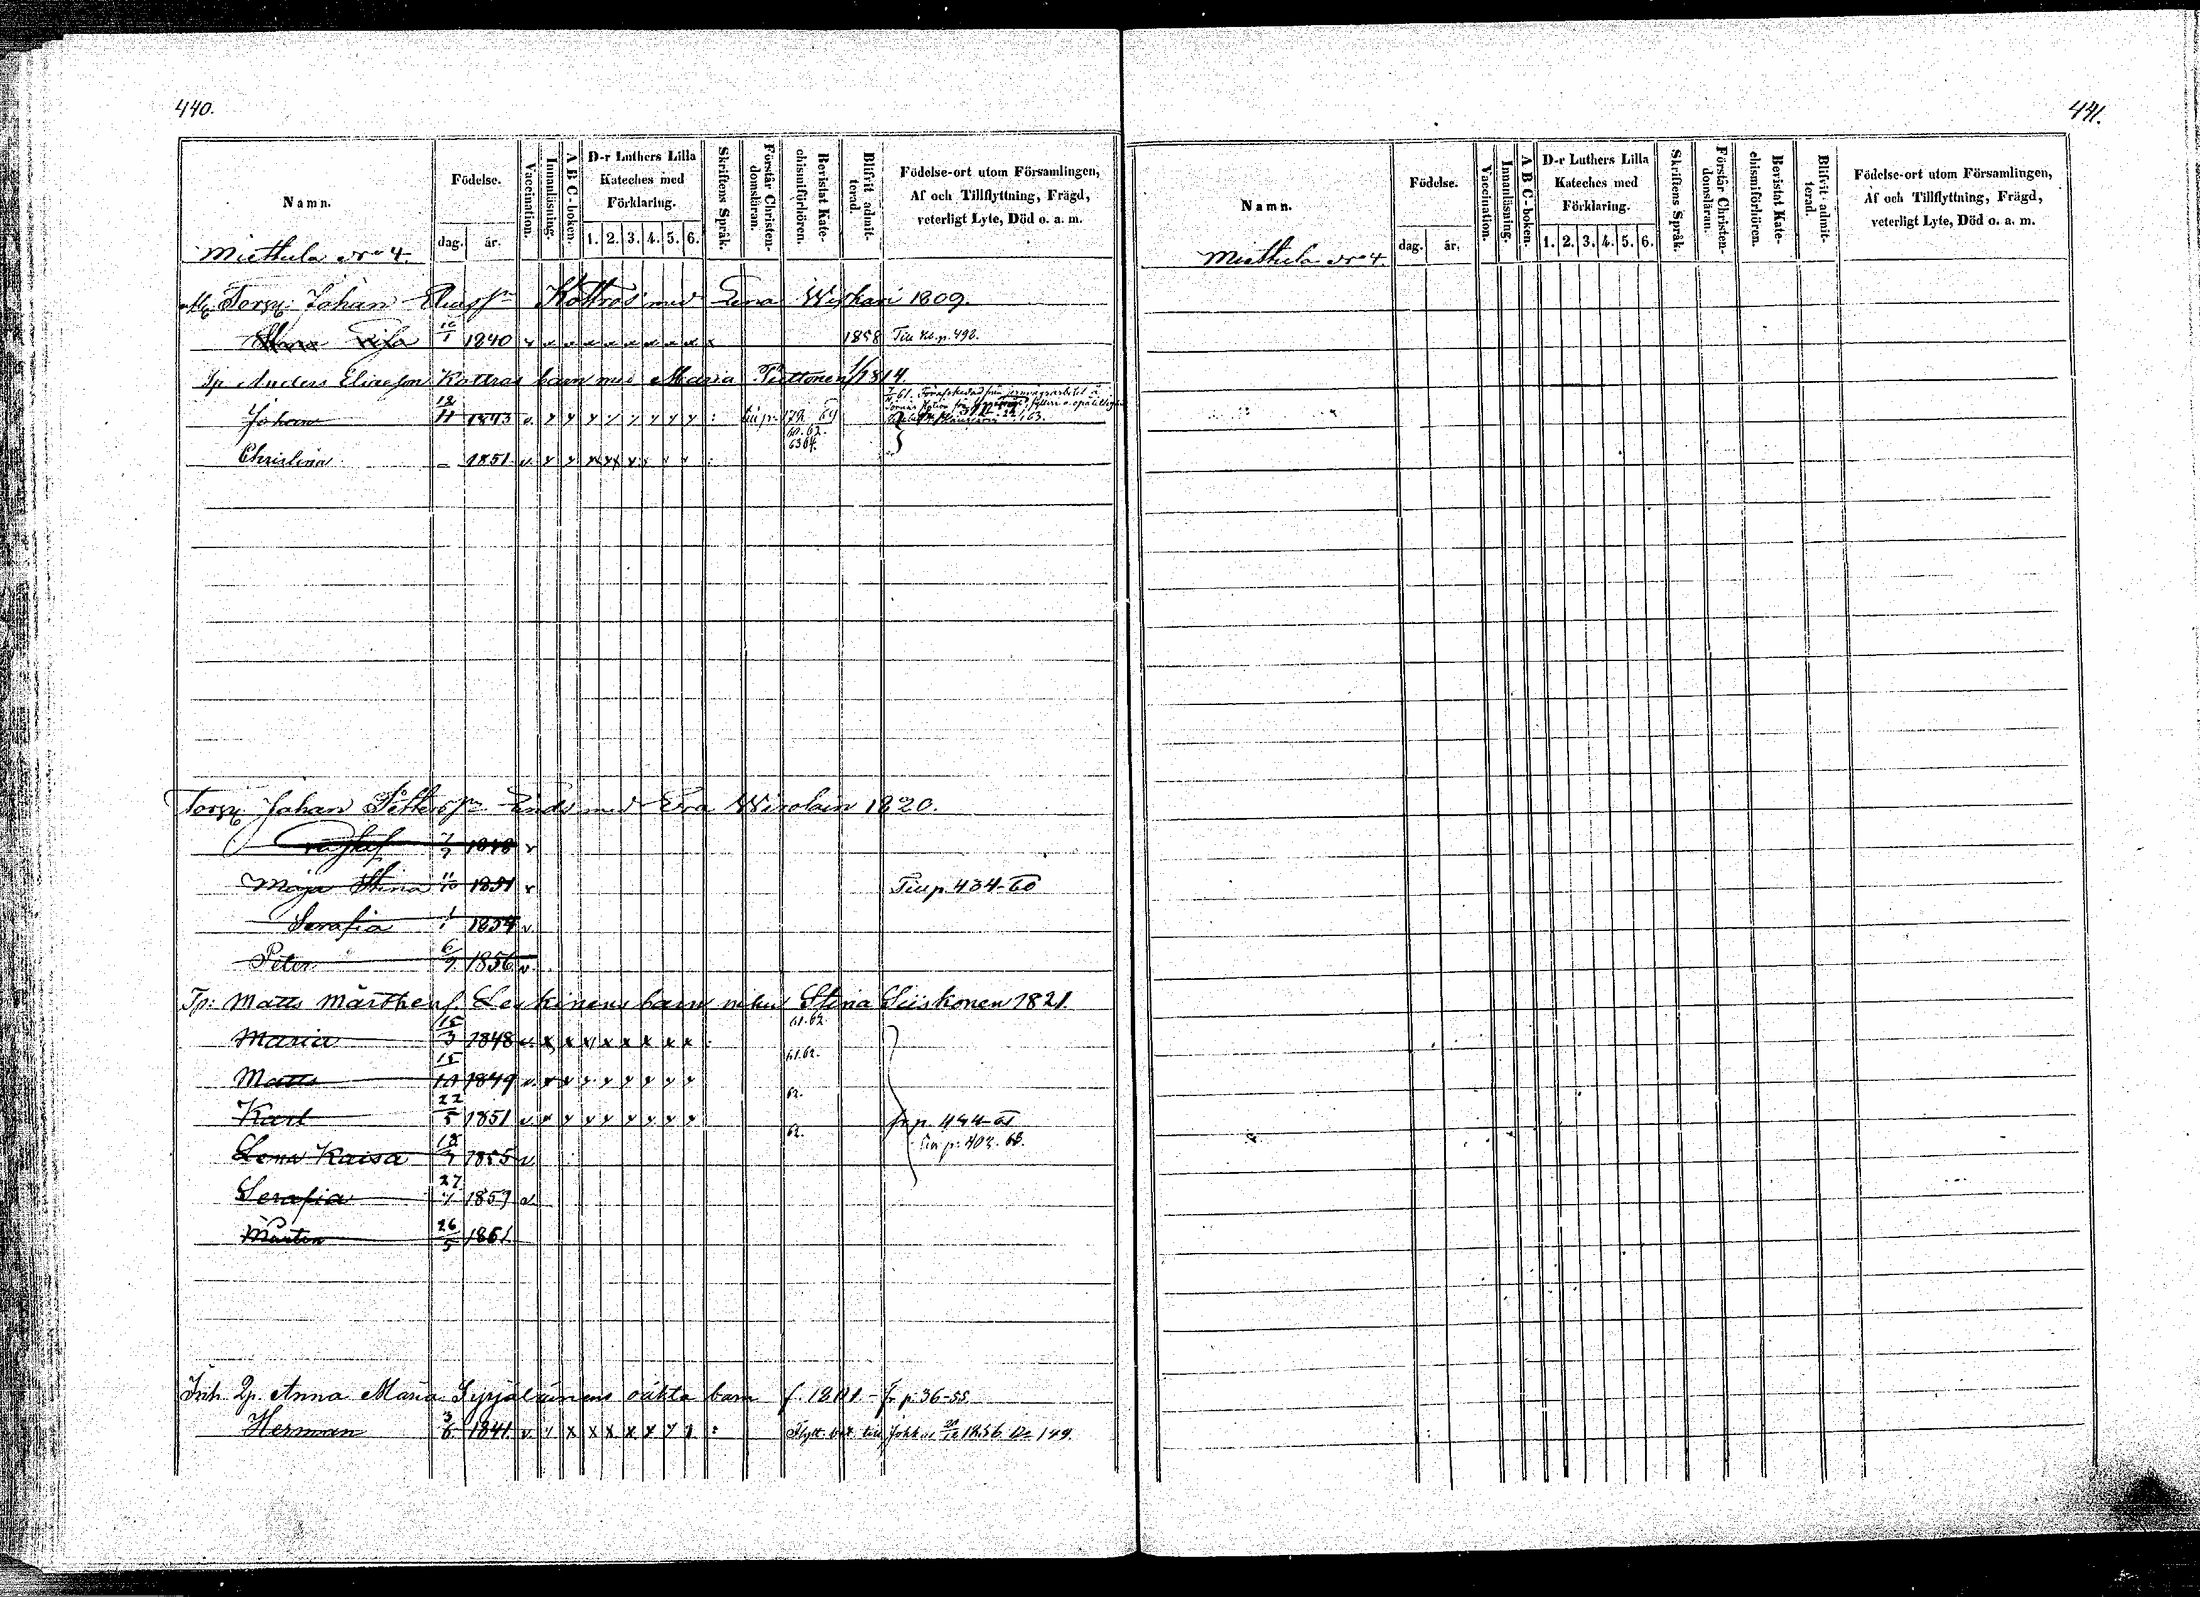 440.
Namn.
Födelse.
dag. år.
Vaccination.
Innanläsning.
A B C-boken.
D-r Luthers Lilla
Kateches med
Förklaring.
1. 2. 3. 4. 5. 6.
Skriftens Språk.
Förstår Christen-
domsläran.
Bevistat Kate-
chismiförhören.
Blifvit admit-
terad.
Födelse-ort utom Församlingen,
Af och Tillflyttning, Frägd,
veterligt Lyte, Död o. a. m.
Miettula No 4.
Johan Eliass:n Kottros med Lena Wirkari 1809.
1840 v x x x x x x x x x 1858 p. 498.
Anders Eliasson Kottras barn med Maria Piittonen 1814.
Johan 18/11 1843 v. y y y y y y y y : 69
60. 62.
63 64.
Christina – 1851 v. y y x x x
Johan Petters:n med Eva Wirolain 1820.
1848 v
Maja Stina 11/10 1851 v Till p. 434-60
Serafia 1854 v.
Peter 6/9 1856 v.
Tp: Matts Mårthenss. Leskinens barn Stina Siiskonen 1821.
61. 62.
Maria 15/3 1848 v. x x x x x x x x
61. 62.
Matts 15/10 1849 v. x x y y y y y y
62.
Karl 22/5 1851 v. x y y y y y y y fr p. 444-61
62.
Till p: 403. 68.
Lena Kaisa 18 1855 v
Serafia 27 1859 v.
Mårten 26/5 1861.
Inh. Anna Maria Syrjäläinens oäkta barn f. 1801 – fr p. 36-55
Herman 3/6 1841 v. y x x x x y y y : Flytt. till 1856 149.
441.
Namn.
Födelse.
dag. år.
Vaccination.
Innanläsning.
A B C-boken.
D-r Luthers Lilla
Kateches med
Förklaring.
1. 2. 3. 4. 5. 6.
Skriftens Språk.
Förstår Christen-
domsläran.
Bevistat Kate-
chismiförhören.
Blifvit admit-
terad.
Födelse-ort utom Församlingen,
Af och Tillflyttning, Frägd,
veterligt Lyte, Död o. a. m.
Miettula No 4.